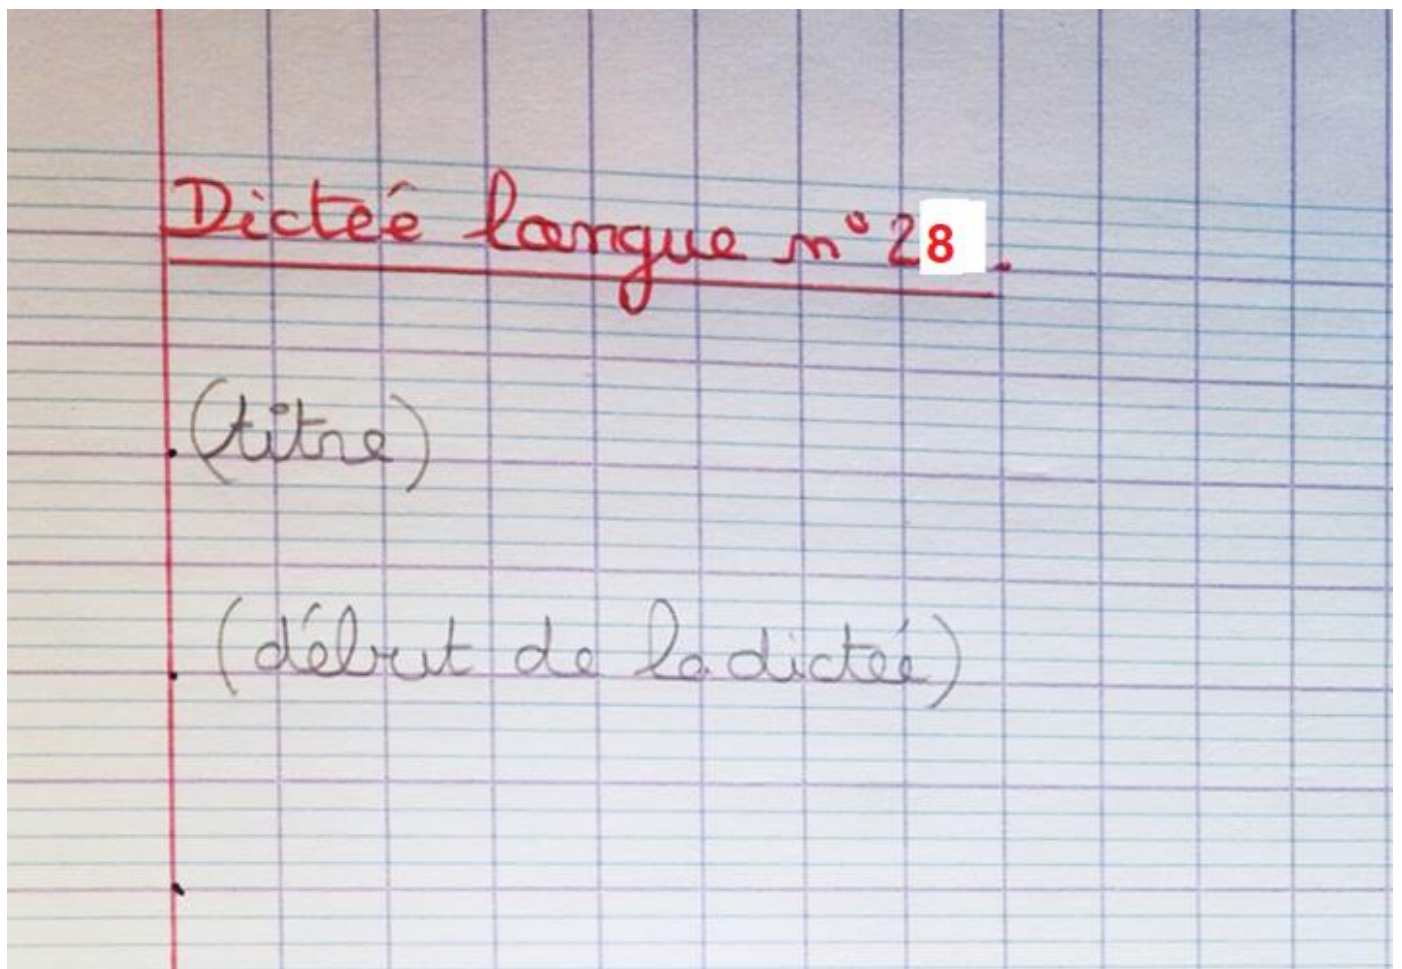 Dictée langue n° 28.
(titre)
(début de la dictée)